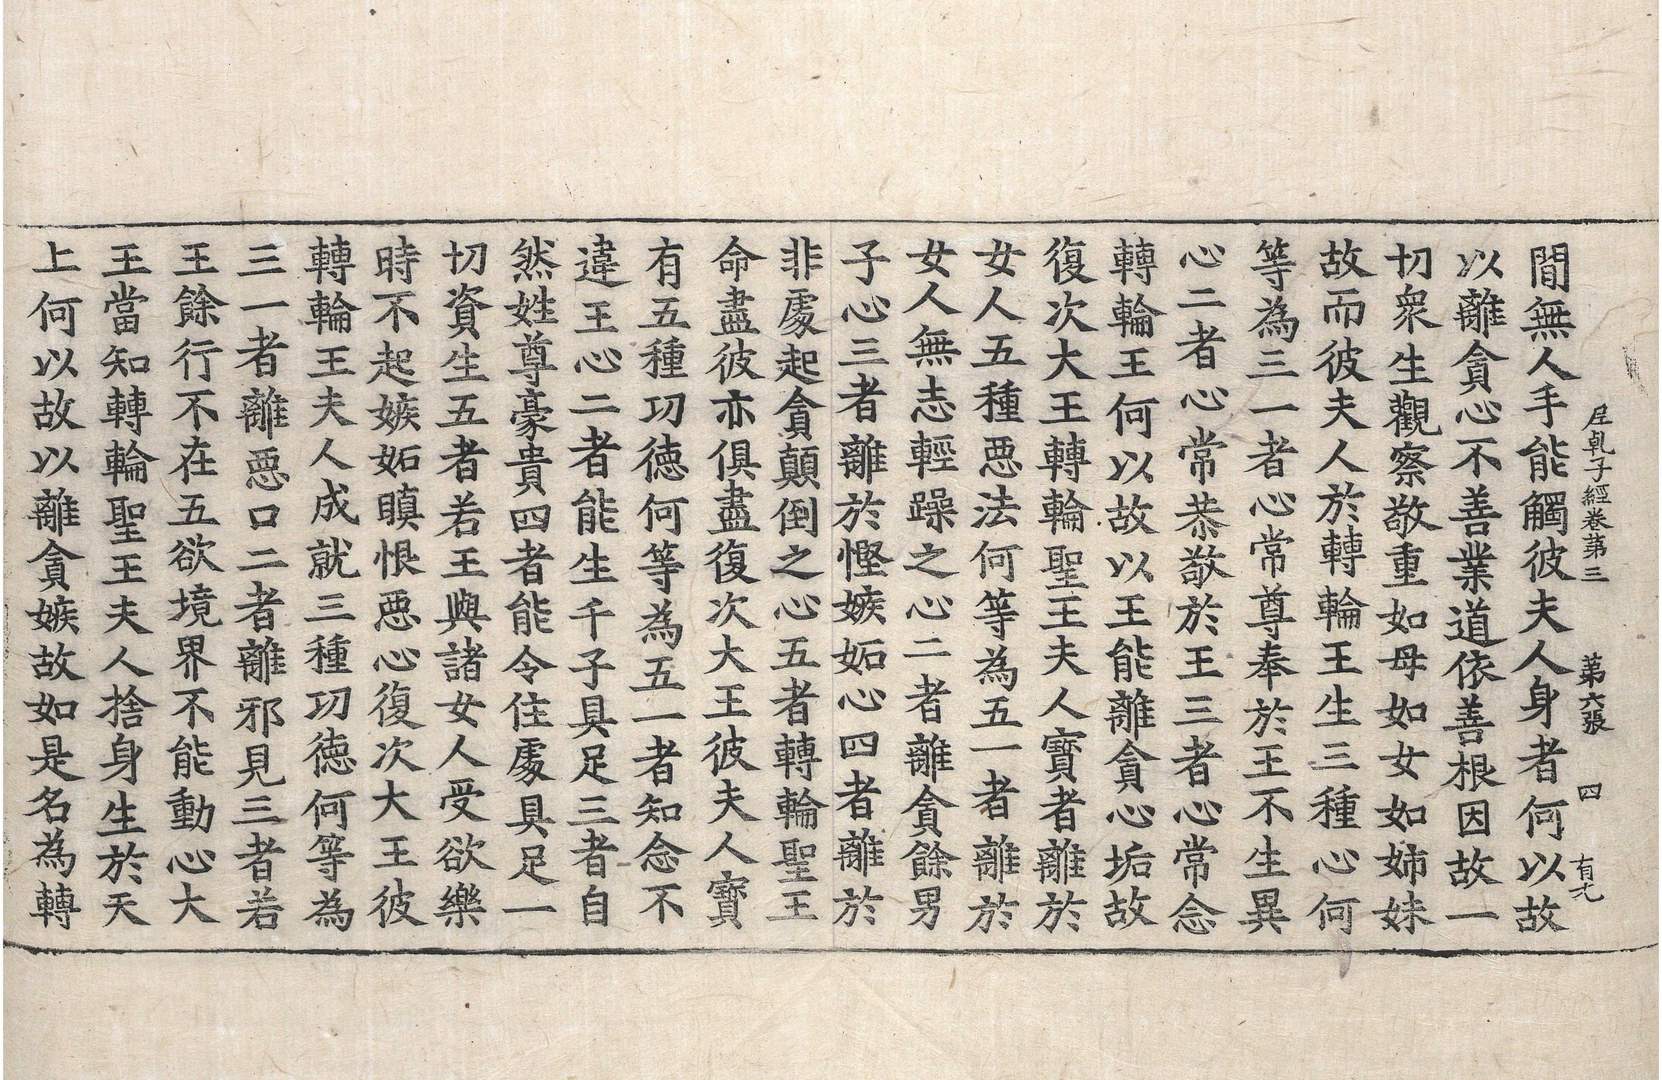 尼乹子經卷第三　第六張　四　有才
間無人手能觸彼夫人身者何以故
以離貪心不善業道依善根因故一
切衆生觀察敬重如母如女如姉妹
故而彼夫人於轉輪王生三種心何
等為三一者心常尊奉於王不生異
心二者心常恭敬於王三者心常念
轉輪王何以故以王能離貪心垢故
復次大王轉輪聖王夫人寶者離於
女人五種惡法何等為五一者離於
女人無志輕躁之心二者離貪餘男
子心三者離於慳嫉妬心四者離於
非處起貪顛倒之心五者轉輪聖王
命盡彼亦俱盡復次大王彼夫人寶
有五種功德何等為五一者知念不
違王心二者能生千子具足三者自
然姓尊豪貴四者能令住處具足一
切資生五者若王與諸女人受欲樂
時不起嫉妬瞋恨惡心復次大王彼
轉輪王夫人成就三種功德何等為
三一者離惡口二者離邪見三者若
王餘行不在五欲境界不能動心大
王當知轉輪聖王夫人捨身生於天
上何以故以離貪嫉故如是名為轉